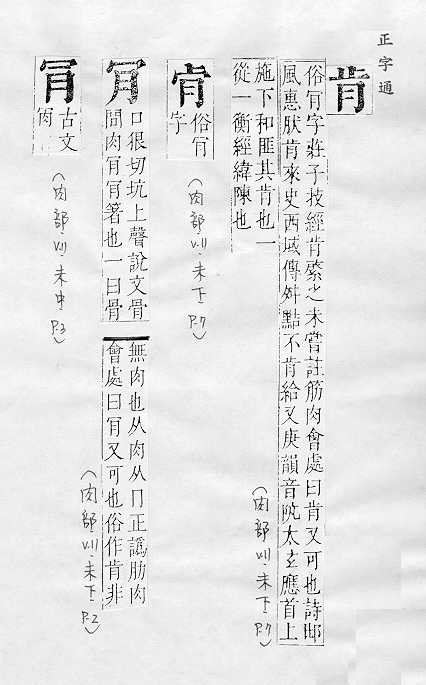 正字通
肯
俗肎字莊子技經肯綮之未嘗註筋肉會處曰肯又可也詩邶
風惠肰肯來史西域傳舛點不肯給又庚韻音阬太玄應首上
施下和匪其肯也一
從一衡經緯陳也
(肉部 V.11.未下 P.7)
肻
俗肎
字
(肉部 V.11.未下 P.7)
肎
口很切坑上聲說文骨
閒肉肎肎箸也一曰骨
無肉也从肉从冂正譌肋肉
會處曰肎又可也俗作肯非
(肉部 V.11.未下 P.2)
古文
(肉部 V.11.未中 P.3)